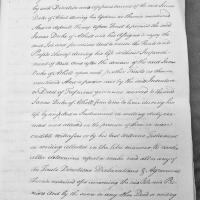 by and Direction and Appointment of the said James
Duke of Atholl during his lifetime as therein mentioned
And in default thereof upon Trust to permit the said
James Duke of Atholl and his Assigns to enjoy the
said Isle and premises and to receive the Rents and
Profits thereof during his life without Impeachment
of Waste And after the decease of the said James
Duke of Atholl upon such further Trusts as therein
mentioned And a power
or Deed of Trust was given and reserved to the said
James Duke of Atholl from time to time during his
life by any Deed or Instrument in writing duly exe-
cuted and attested in the presence of three or more
credible witnesses or by his last Will and Testament
in writing attested in the like manner to revoke
alter determine repeal or make void all or any of
the Trusts Directions Declarations & Agreements
therein contained of or concerning the said Isle and Pre-
mises And by the same or any other Deed or writing